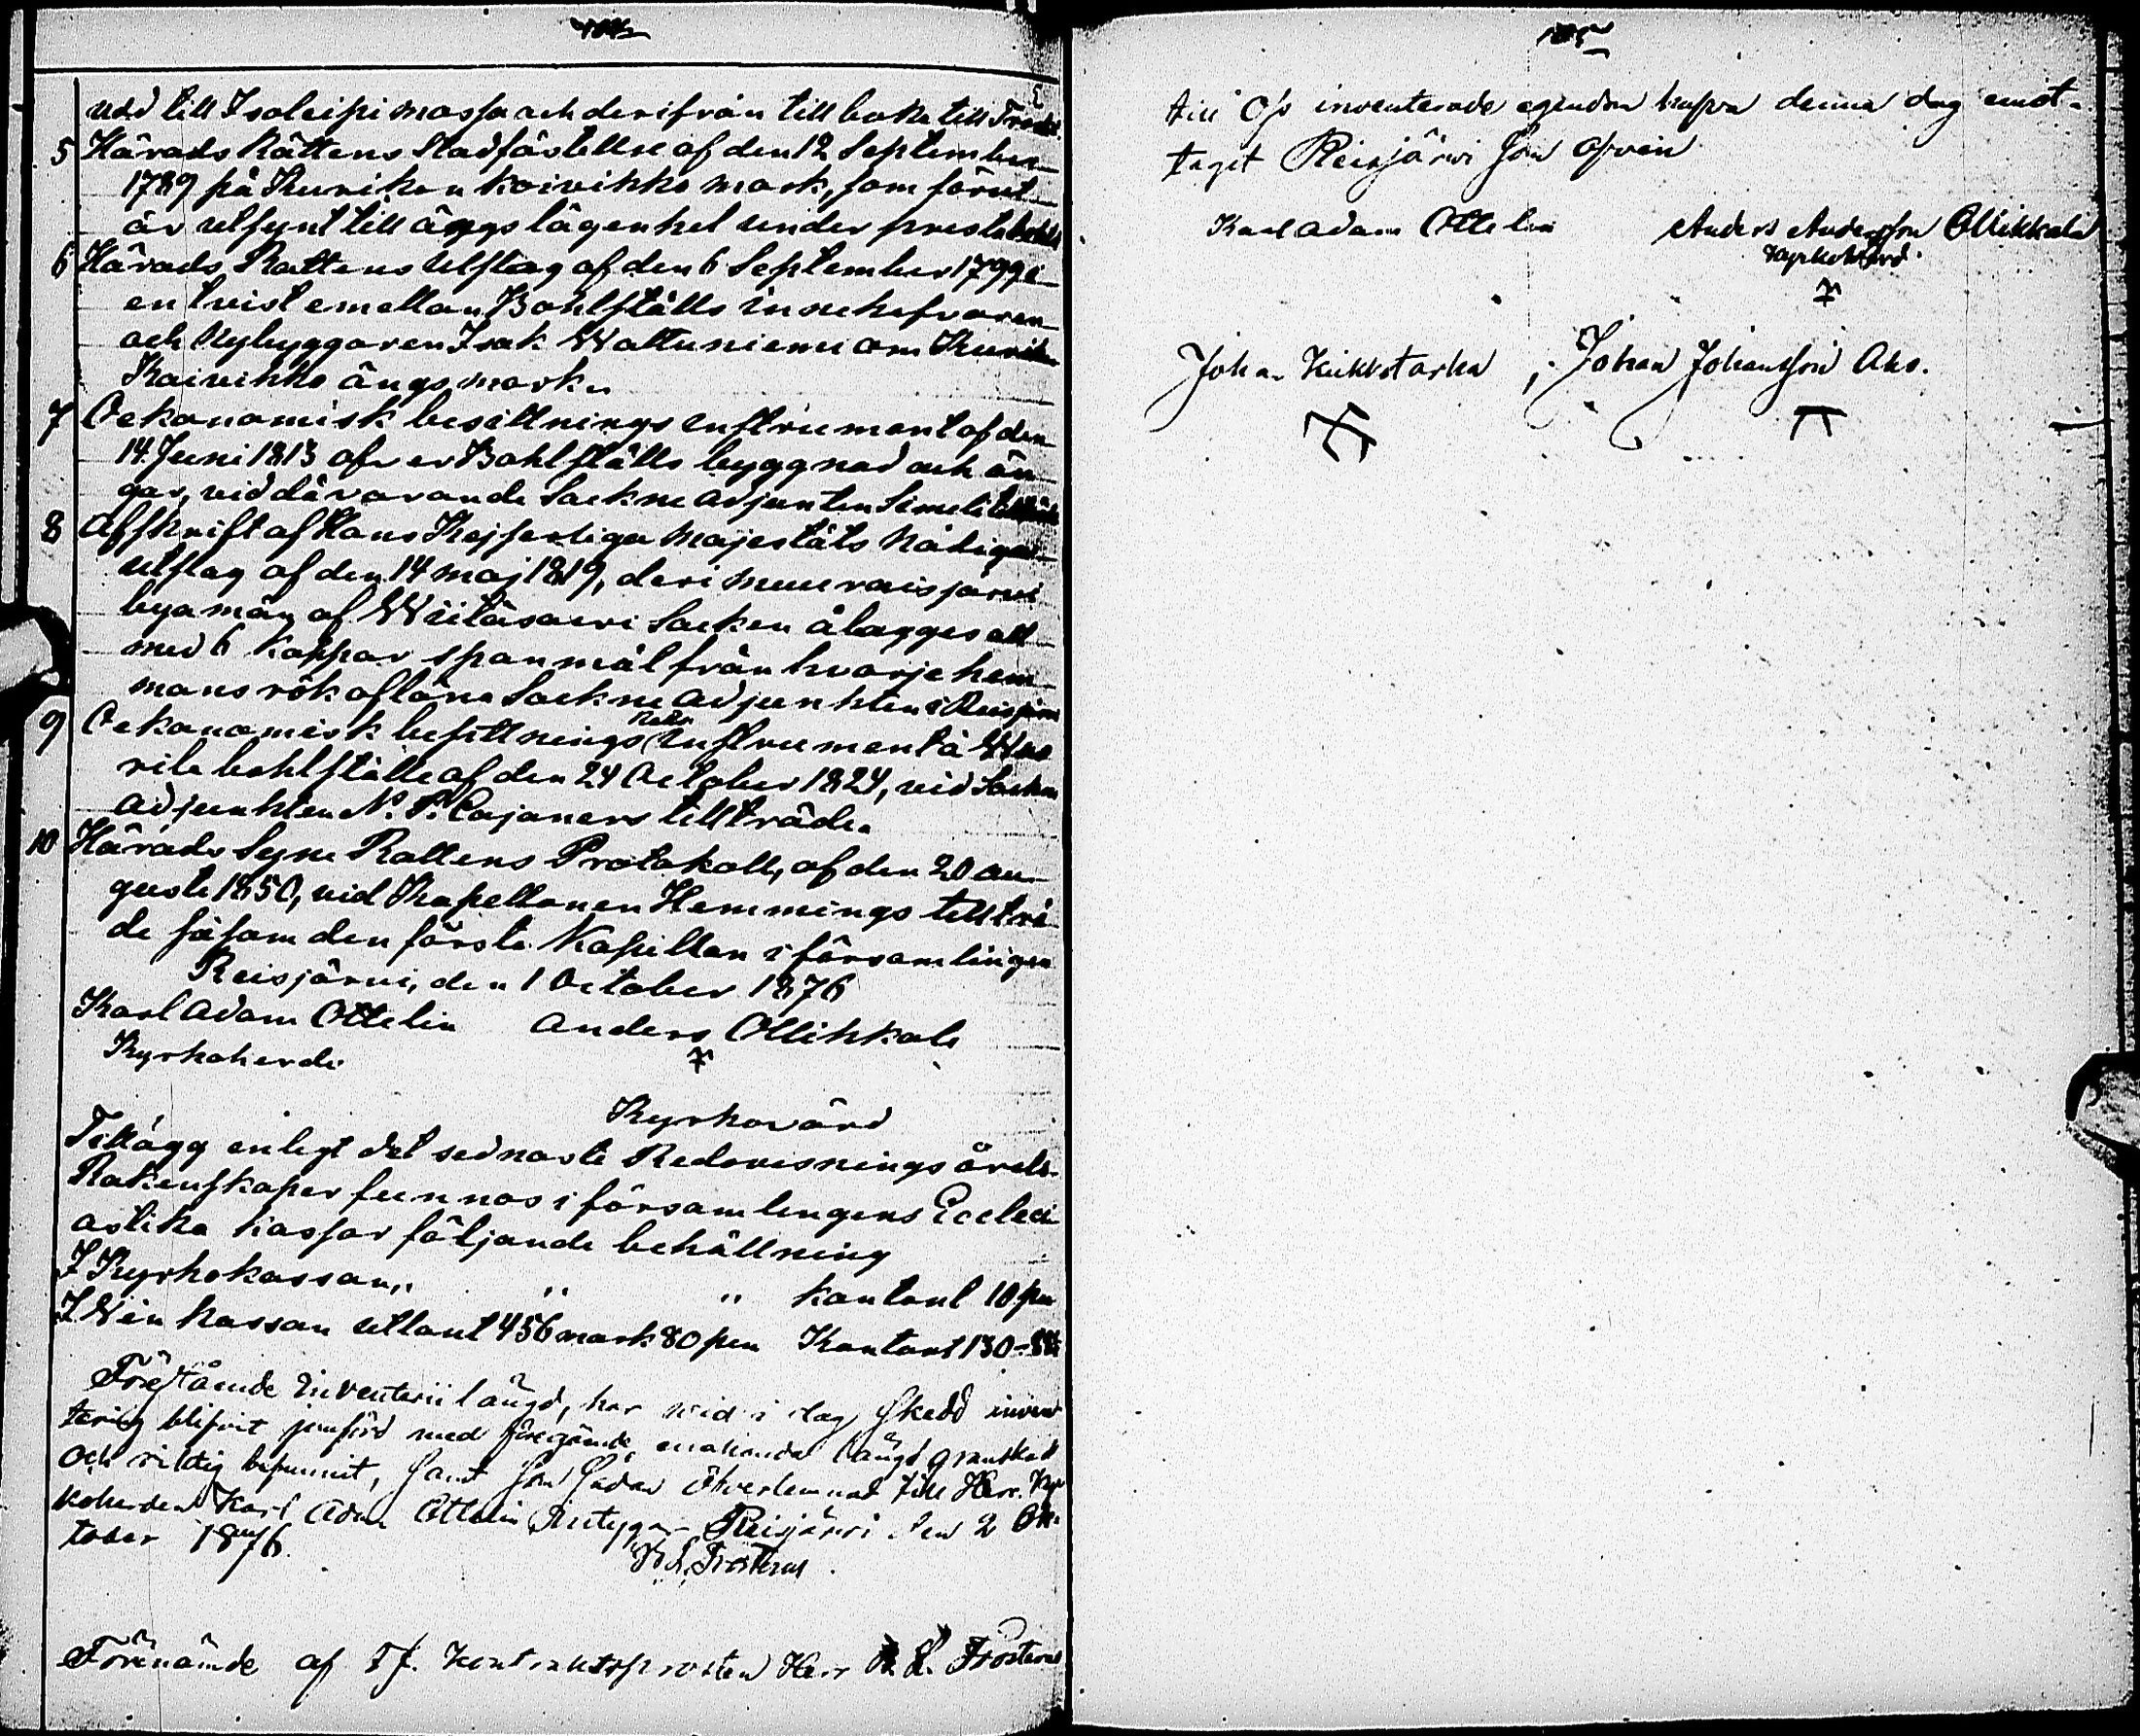 udd till Isoleipi mossa och derifrån till baka till
5 Härads Rättens Stadfästellse af den 12 September
1789 på Kurikan koivikko mark, som förut
är utsynt till ängs lägenhet under prestabohle
6 Härads Rattens Utslag af den 6 September 1799 i
en tvist emellan Bohlställs innehafvaren
och Nybyggaren Isak Wattuniemi om Kurikan
Koivikko ängs mark.
7 Oekonomisk besittnings Instrument af den
14 Juni 1813 öfver Bohlställs byggnad och än
gar, vid dåvarande Sockne adjunten Simeli
8 Afskrift af Hans Kejserliga Majestäts Nådiga
Utslag af den 14 maj 1819, deri menereisjärvi
bya män af Wiitasaari Socken ålägges att
med 6 Kappar spanmål från hvarje hem
mans rök aflöna Sockne adjunkten i Reisjärvi
9 Oekonomisk besittnings Rätts Instrument å
rila bohlställe af den 24 October 1824, vid Sockne
adjunkten N. P. Cajaners tillträde.
10 Härads Syne Rattens Protokoll, af den 20 au
gusti 1850, vid Kapellanen Hemmings tillträ
de såsom den förste Kapellan i församlingen
Reisjärvi, den 1 October 1876
Karl Adam Ottelin Anders Ollikkala
Kyrkoherde
Kyrkovärd
Tillägg enligt det sednaste Redovisnings årets
Rakenskaper funnos i församlingens Eclesi
astika kassor följande behållning
I Kyrkokassan,, ,, ,, kontant 10 pen
I Win kassan utlant 456 mark 80 pen Kontant 130 -
Förestående Inventarii längd, har vid i dag skedd inven
tering blifvit jemförd med föregående enahanda längd granskad
och riktig befunnit, samt som sådan öfverlemnad till Herr Kyr
koherden Karl Adam Ottelin Betygar Reisjärvi den 2 Ok
tober 1876.
K. L. Frosterus
Förenämde af Tf. Kontraktsprosten Herr K. L. Frosterus
till oss inventerade egendom hafva denna dag emot-
taget Reisjärvi som ofvan
Karl Adam Ottelin Anders Andersson Ollikkala
Kyrkovärd
Johan Kukkotarha, Johan Johansson Aho.